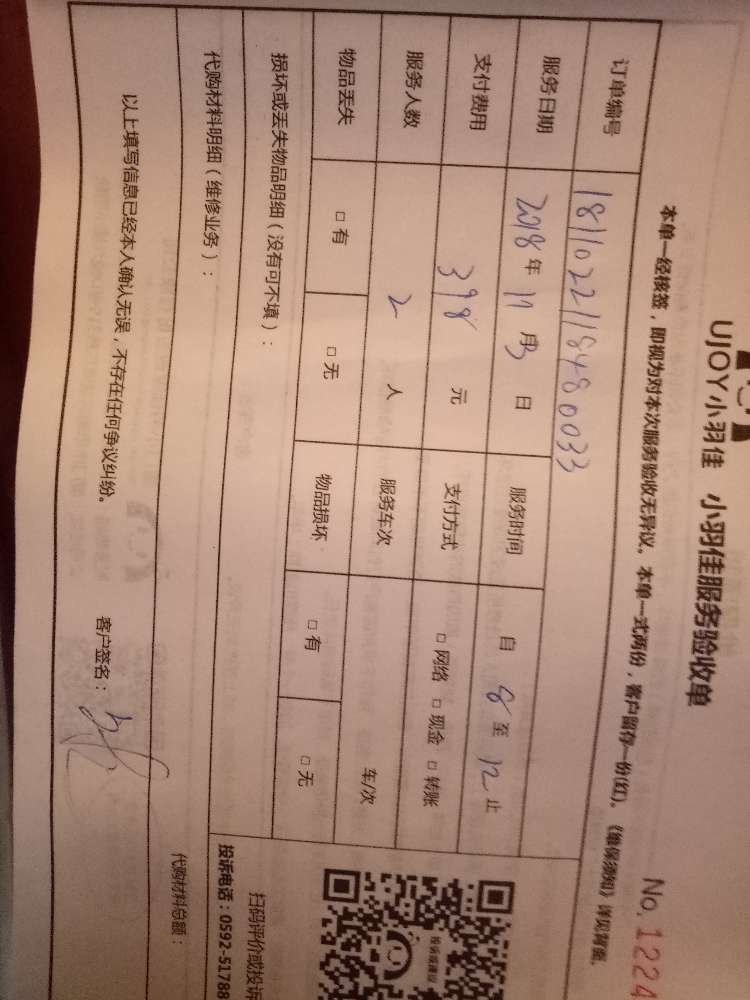 UJOY小羽佳 小羽佳服务验收单
No.1224
本单一经核签，即视为对本次服务验收无异议。本单一式两份，客户留存一份(红)。《维保须知》详见背面。
订单编号 1811022118480033
服务日期 2018年11月3日 服务时间 自8至12止
支付费用 398元 支付方式 □网络 □现金 □转账
服务人数 2人 服务车次 车/次
物品丢失 □有 □无 物品损坏 □有 □无
损坏或丢失物品明细（没有可不填）：
代购材料明细（维修业务）：
代购材料总额：
以上填写信息已经本人确认无误，不存在任何争议纠纷。 客户签名：
投诉或建议
扫码评价或投诉
投诉电话：0592-51788